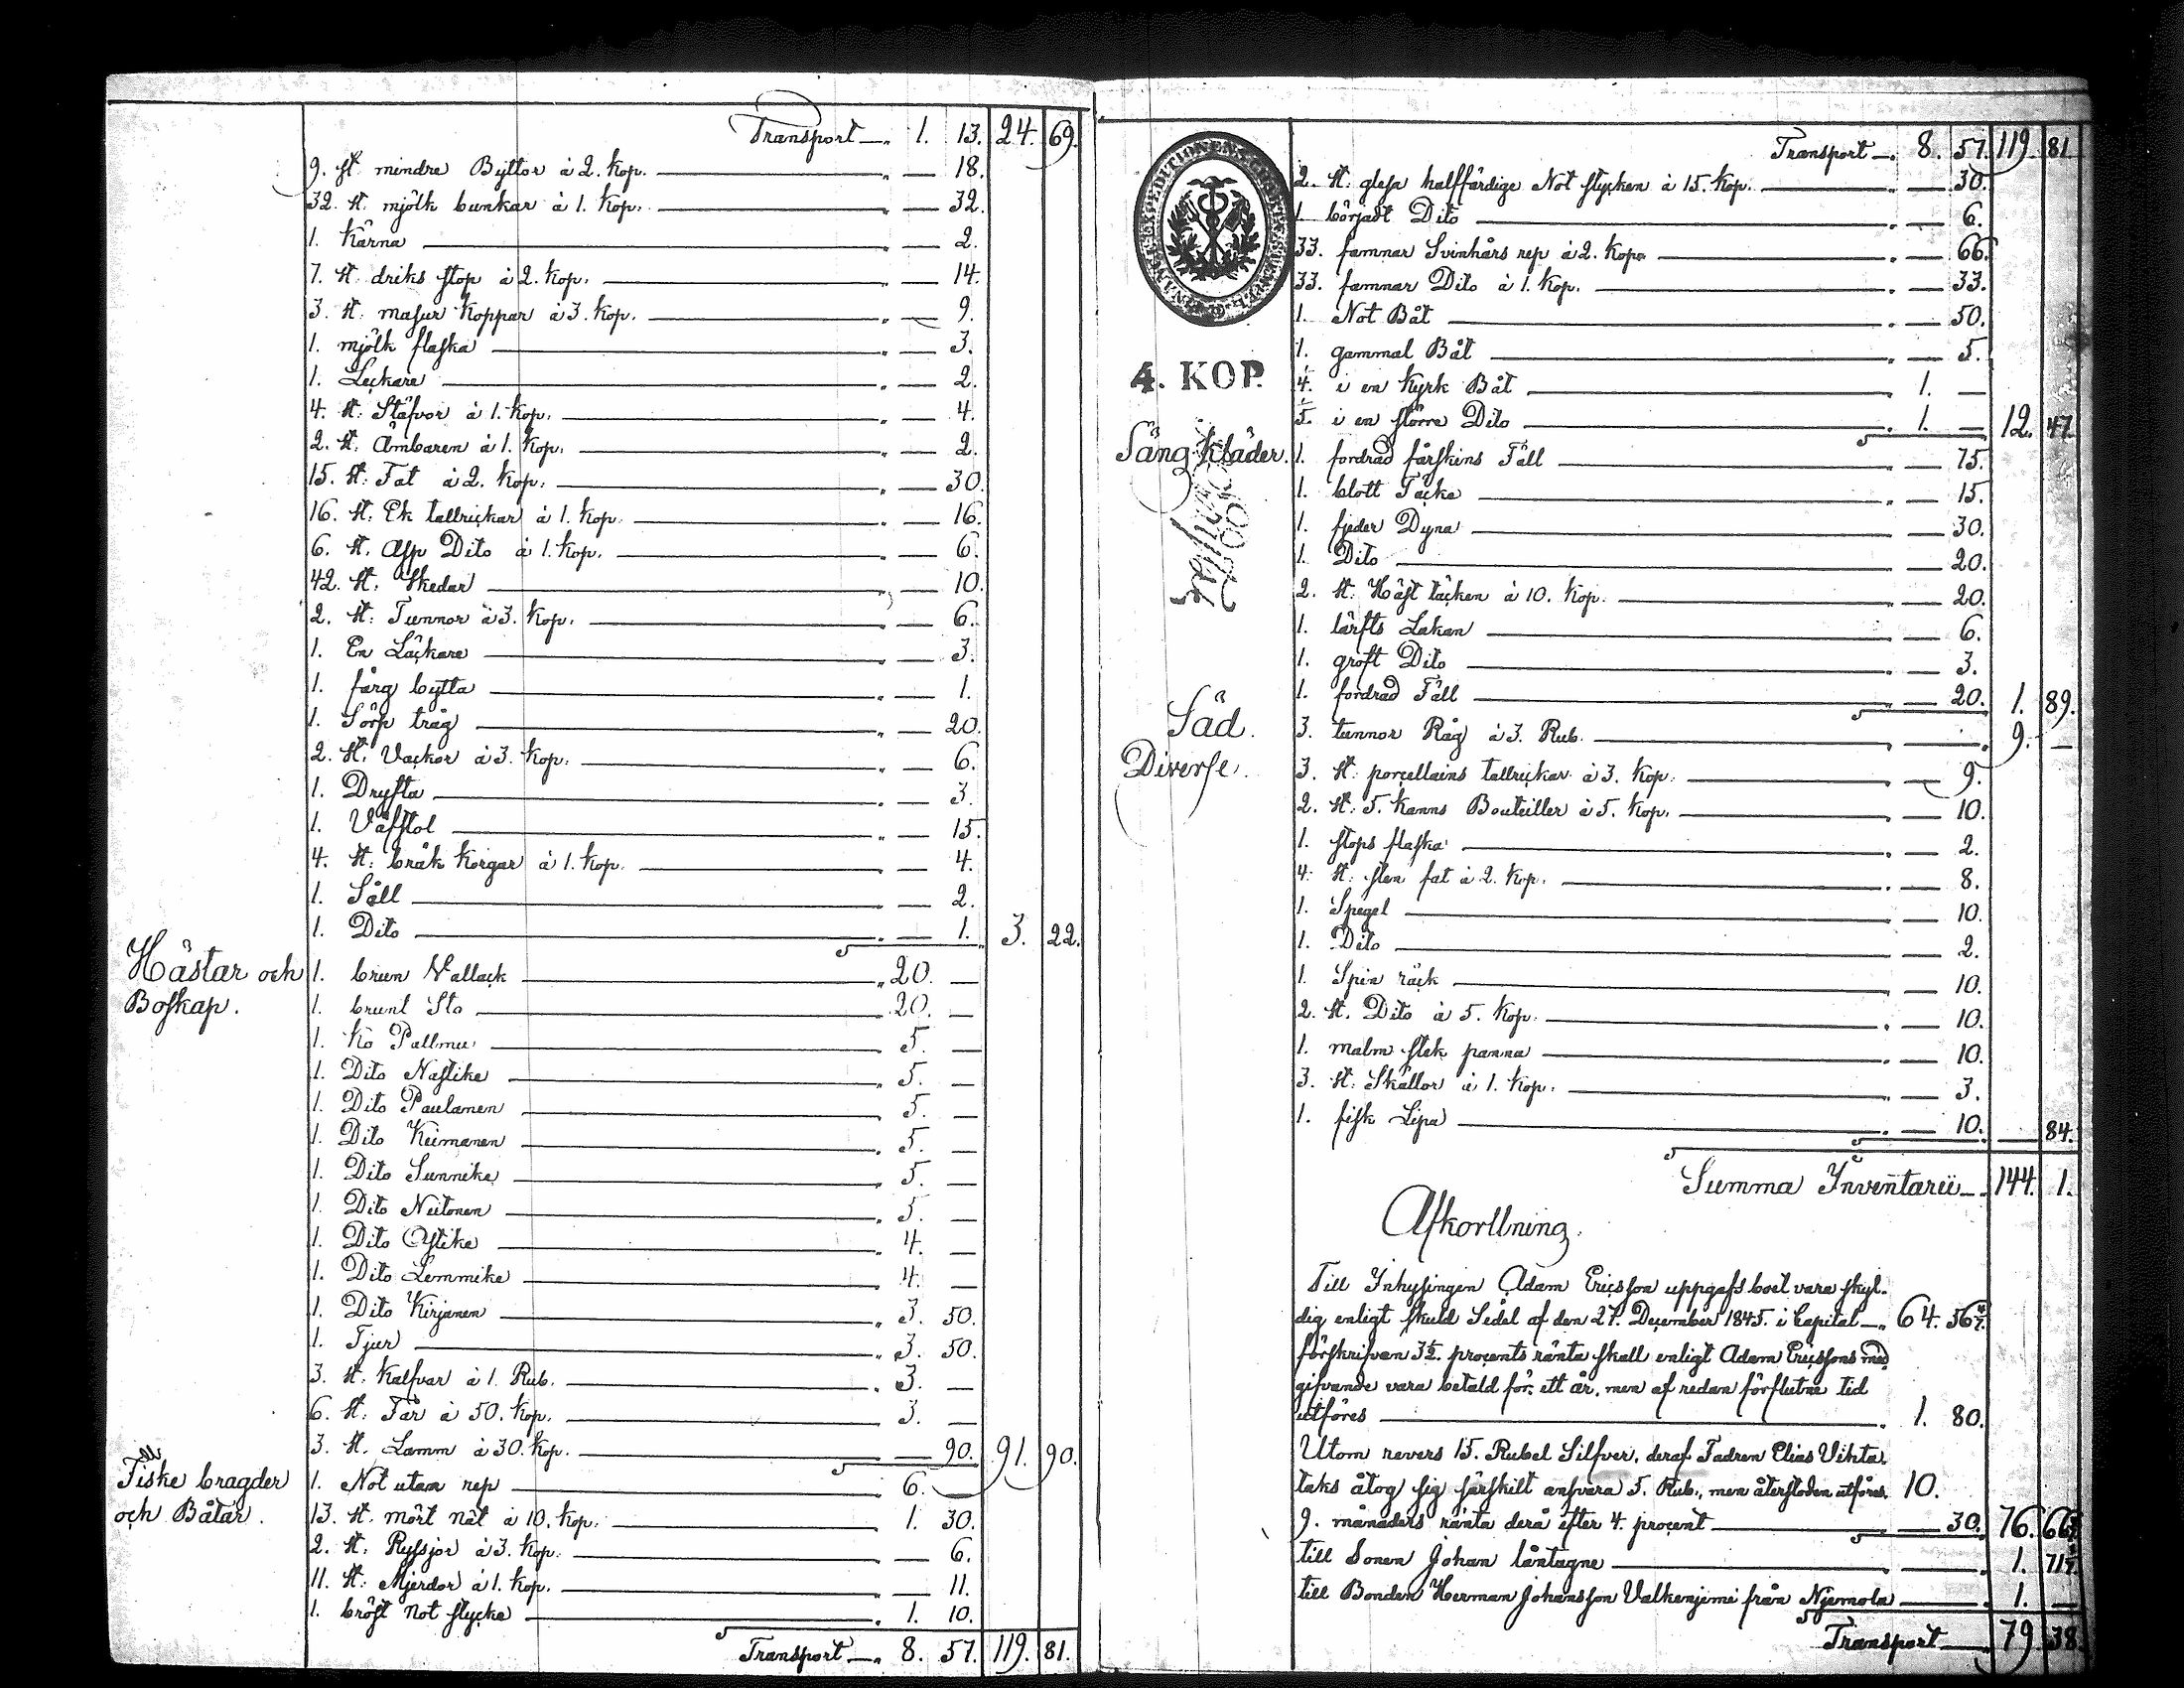 Transport 1. 13. 24. 69.
9. st mindre Byttor à 2. kop. 18.
32. st. mjölk bunkar à 1. kop. 32.
1. Kärna 2.
7. st driks stop à 2. kop. 14.
3. st. masur Koppar à 3. kop. 9.
1. mjölk flaska 3.
1. Leckare 2.
4. st. Stäfvor à 1. kop. 4.
2. st. Ämbaren à 1. kop. 2.
15. st. Fat à 2. kop. 30.
16. st. Ek tallrickar à 1. kop. 16.
6. st. Asp Dito à 1. kop. 6.
42. st. Skedar 10.
2. st. Tunnor à 3. kop. 6.
1. En Läckare 3.
1. färg bytta 1.
1. Sörp tråg 20.
2. st. Vackor à 3. kop. 6.
1. Dryfta 3.
1. Väfstol 15.
4. st. bråk korgar à 1. kop. 4.
1. Såll 2.
1. Dito 1. 3. 22.
Hästar och 1. brun Vallack 20. —
Boskap. 1. brunt Sto 20. —
1. Ko Pallmu 5. —
1. Dito Nastike 5. —
1. Dito Paulanen 5. —
1. Dito Keimanen 5. —
1. Dito Sunnike 5. —
1. Dito Neitonen 5. —
1. Dito Ostike 4. —
1. Dito Lemmike 4. —
1. Dito Kirjanen 3. 50.
1. Tjur 3. 50.
3. st. Kalfvar à 1. Rub. 3. —
6. st. Får à 50. kop. 3. —
3. st. Lamm à 30. kop. 90. 91. 90.
Fiske bragder 1. Not utan rep 6. —
och Båtar. 13. st. mört nät à 10. kop. 1. 30.
2. st. Ryssjor à 3. kop. 6.
11. st. Mjerdor à 1. kop. 11.
1. bröst not stycke 1. 10.
Transport 8. 57. 119. 81.
Transport 8. 57. 119. 81
2. st. glesa halffärdige Not stycken à 15. kop. 30.
1. börjadt Dito 6.
33. famnar Svinhårs rep à 2. kop. 66.
33. famnar Dito à 1. kop. 33.
1. Not Båt 50.
1. gammal Båt 5.
4. KOP.
1/4. i en Kyrk Båt 1. —
1/5. i en större Dito 1. — 12. 47.
Säng kläder. 1. fordrad fårskins Fäll 75.
1. blott Täcke 15.
1. fjeder Dyna 30.
1. Dito 20.
2. st. Häst täcken à 10. kop. 20.
1. lärfts Lakan 6.
1. groft Dito 3.
1. fordrad Fäll 20. 1. 89.
Säd. 3. tunnor Råg à 3. Rub. 9. —
Diverse. 3. st. porcellains tallrickar à 3. kop. 9.
2. st. 5. kanns Bouteiller à 5. kop. 10.
1. stops flaska 2.
4. st. sten fat à 2. kop. 8.
1. Spegel 10.
1. Dito 2.
1. Spin räck 10.
2. st. Dito à 5. kop. 10.
1. malm stek panna 10.
3. st. Skällor à 1. kop. 3.
1. fisk Lipa 10. 84.
Summa Inventarii 144. 1.
Afkortning.
Till Inhysingen Adam Ericsson uppgafs boet vara skyl-
dig enligt skuld Sedel af den 27. December 1845. i Capital 64. 56 4/7.
förskrifven 3½. procents ränta skall enligt Adam Ericssons med
gifvande vara betald för ett år, men af redan förflutne tid
utföres 1. 80.
Utom revers 15. Rubel Silfver, deraf Fadren Elias
taks åtog sig särskilt ansvara 5. Rub., men återstoden utföres 10.
9. månaders ränta derå efter 4. procent 30. 76. 66
till Sonen Johan låntagne 1. 71
till Bonden Herman Johansson Valkenjemi från Njemola 1. —
Transport 79 38